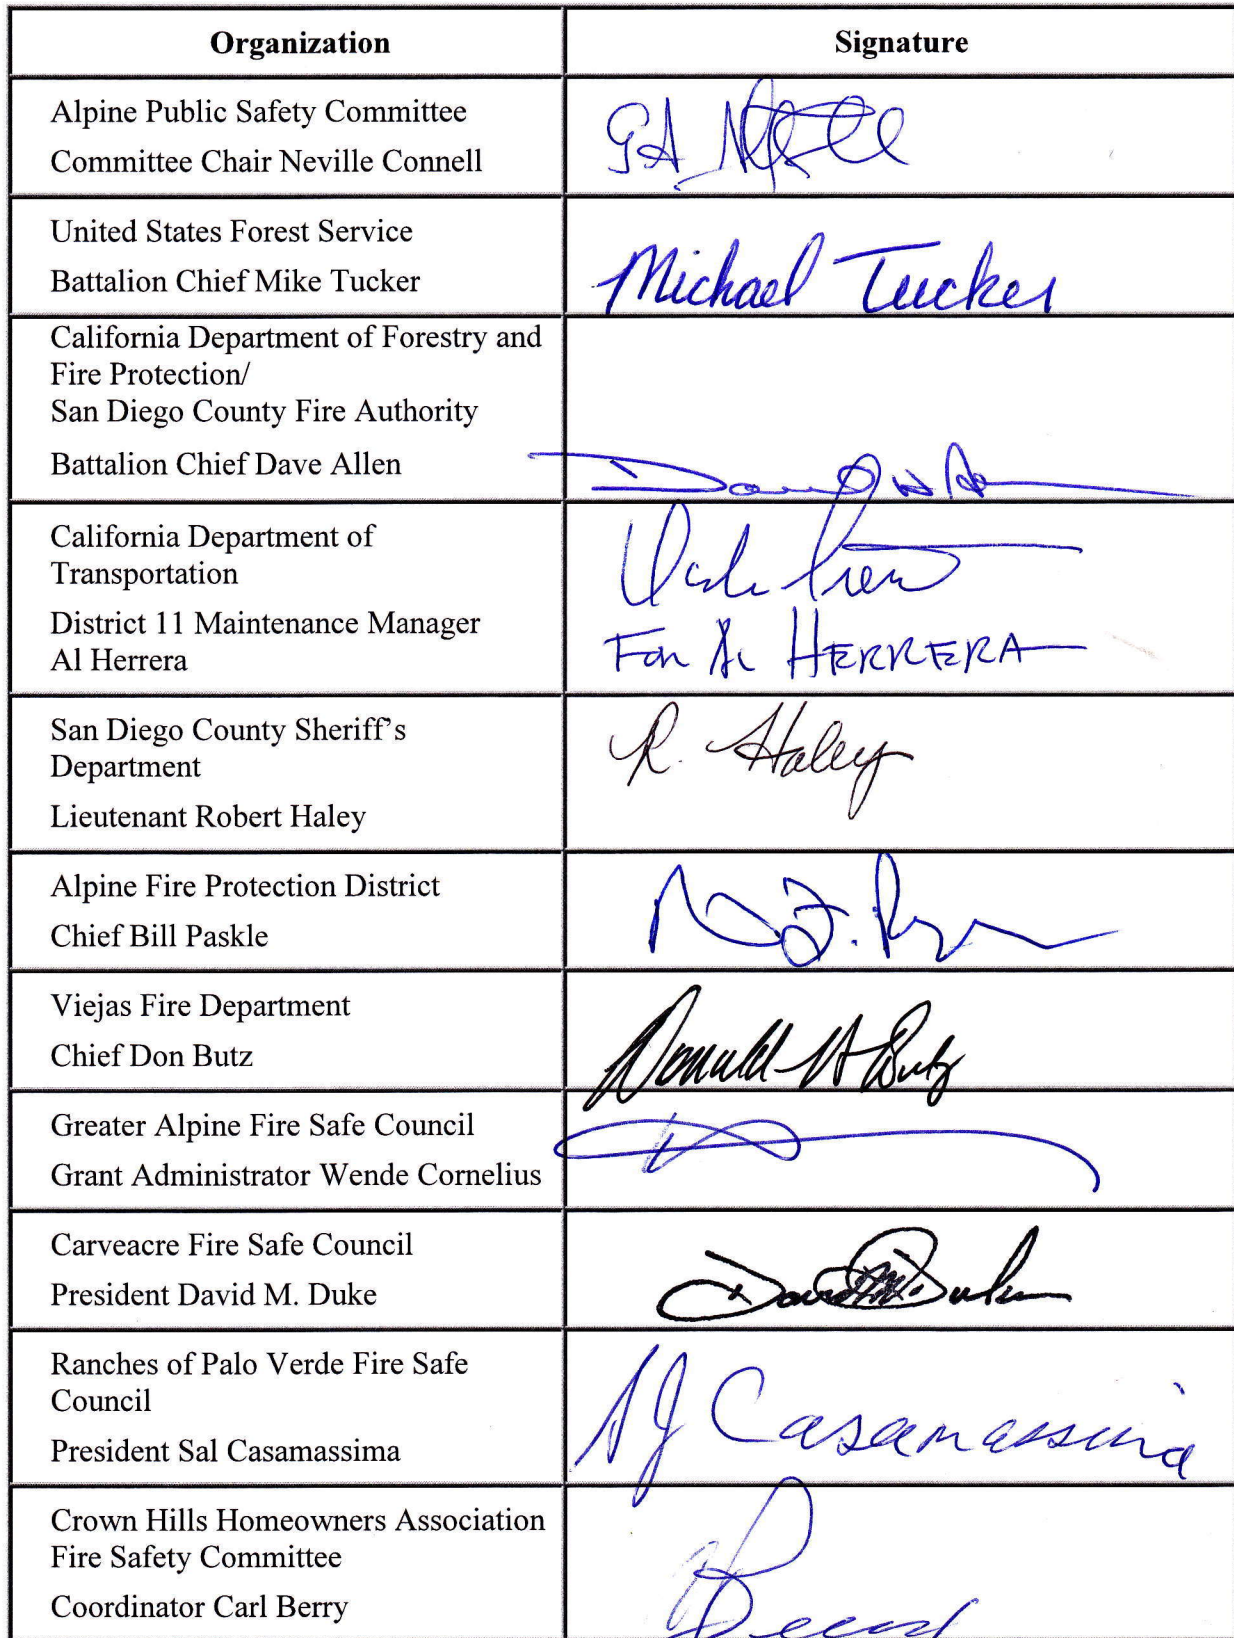 Organization
Signature
Alpine Public Safety Committee
Committee Chair Neville Connell
United States Forest Service
Battalion Chief Mike Tucker
Michael Tucker
California Department of Forestry and
Fire Protection/
San Diego County Fire Authority
Battalion Chief Dave Allen
California Department of
Transportation
District 11 Maintenance Manager
Al Herrera
For Al HERRERA
San Diego County Sheriff's
Department
Lieutenant Robert Haley
R. Haley
Alpine Fire Protection District
Chief Bill Paskle
Viejas Fire Department
Chief Don Butz
Donald H Butz
Greater Alpine Fire Safe Council
Grant Administrator Wende Cornelius
Carveacre Fire Safe Council
President David M. Duke
David M. Duke
Ranches of Palo Verde Fire Safe
Council
President Sal Casamassima
SJ Casamassima
Crown Hills Homeowners Association
Fire Safety Committee
Coordinator Carl Berry